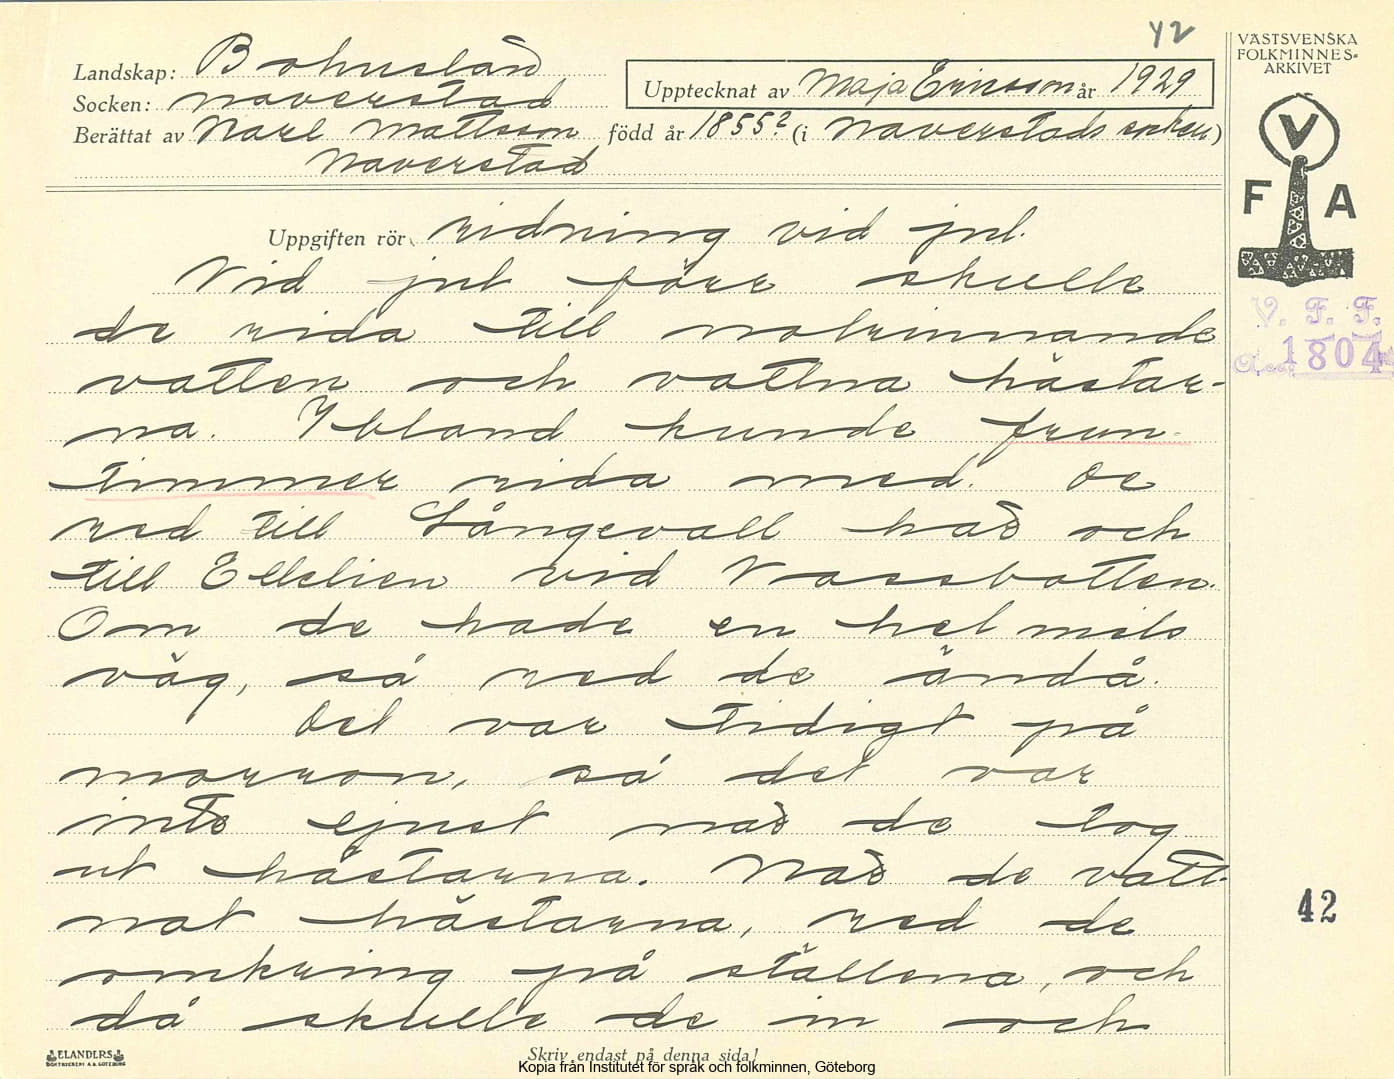 42
VÄSTSVENSKA
FOLKMINNES-
ARKIVET
Landskap: Bohuslän
Socken: Naverstad
Upptecknat av Maja Ericsson år 1929
Berättat av Karl Mattsson född år 1855? (i Naverstads socken)
Naverstad
V
F A
Uppgiften rör ridning vid jul.
Vid jul förr skulle
de rida till norrinnande
vatten och vattna hästar-
na. Ibland kunde frun-
timmer rida med. De
red till Långevall här och
till Ellelien vid Vassbotten.
Om de hade en hel mils
väg, så red de ändå.
Det var tidigt på
morron, så det var
inte ljust när de tog
ut hästarna. När de vatt-
nat hästarna, red de
omkring på ställena, och
då skulle de in och
V. F. F.
1804
42
ELANDERS
BOKTRYCKERI A.B. GÖTEBORG
Skriv endast på denna sida!
Kopia från Institutet för språk och folkminnen, Göteborg